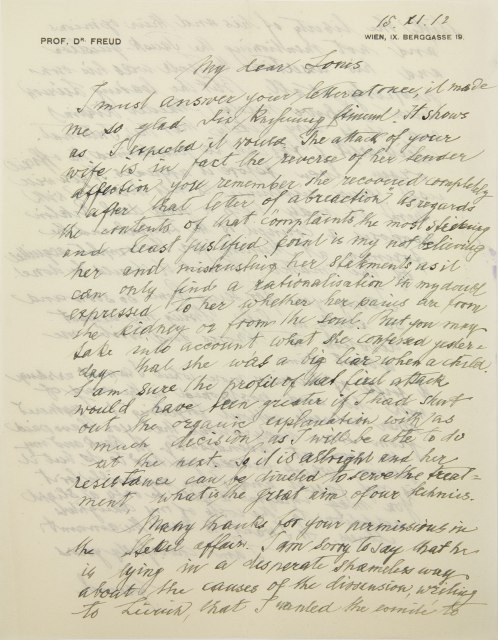 15. XI. 12
PROF. DR. FREUD
WIEN, IX. BERGGASSE 19.
My dear Jones
I must answer your letter at once, it made
me so glad. It shows
as I expected it would. The attack of your
wife is in fact the reverse of her tender
affection you remember she recovered completely
after that letter of abreaction. As regards
the contents of that complaints the most
and least justified point is my not believing
her and mistrusting her statements as it
can only find a rationalisation in my doubt
expressed to her whether her pains are from
the kidney or from the soul. But you may
take into account what she confessed yester-
day that she was a big liar when a child.
I am sure the profit of that first attack
would have been greater if I had shut
out the organic explanation with as
much decision, as I will be able to do
at the next. So it is allright and her
resistance can be directed to serve the treat-
ment, what is the great aim of our technics.
Many thanks for your permissions in
the Stekel affair. I am sorry to say that he
is lying in a desperate shameless way
about the causes of the dissension, writing
to Zürich, that I wanted the to